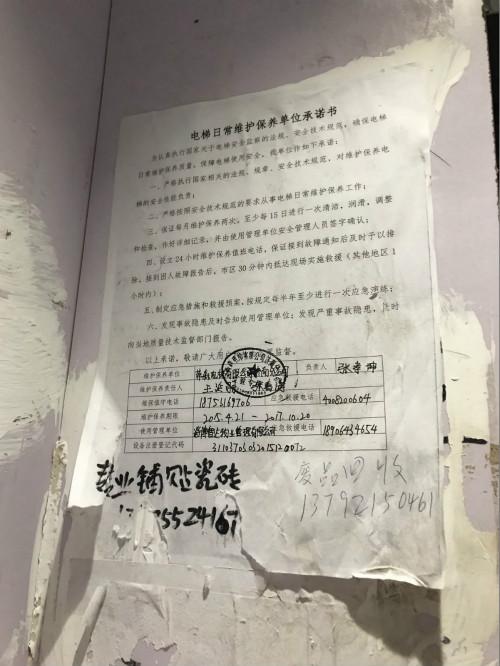 电梯日常维护保养单位承诺书
为认真执行国家关于电梯安全监察的法规、安全技术规范，确保电梯
日常维护保养质量，保障电梯使用安全，我单位作如下承诺：
一、严格执行国家相关的法规、规章、安全技术规范，对维护保养电
梯的安全性能负责；
二、严格按照安全技术规范的要求从事电梯日常维护保养工作；
三、保证每月维护保养两次，至少每15日进行一次清洁，润滑，调整
和检查，作好详细记录，并由使用管理单位安全管理人员签字确认；
四、设立24小时维护保养值班电话，保证接到故障通知后及时予以排
除，接到困人故障报告后，市区30分钟内抵达现场实施救援（其他地区1
小时内）；
五、制定应急措施和救援预案，按规定每半年至少进行一次应急演练；
六、发现事故隐患及时告知使用管理单位；发现严重事故隐患，及时
向当地质量技术监督部门报告。
以上承诺，敬请广大用 监督。
维护保养单位 负责人 张幸坤
维护保养责任人
维保值守电话 18753169706 应急救援电话 4008200604
维护保养期限 2015.4.21 — 2017.10.20
使用管理单位 应急救援电话 18906434654
设备注册登记代码 31103705032015120072
专业铺贴瓷砖
5524167
废品回收
13792150461